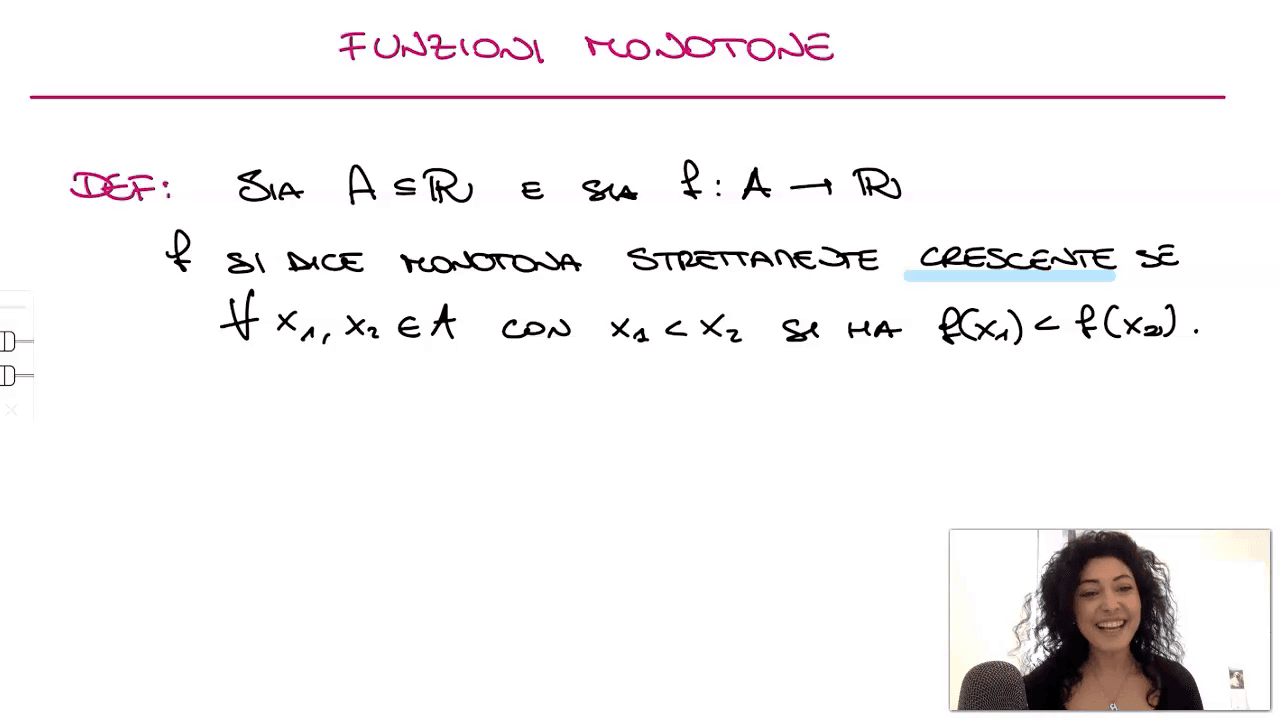 FUNZIONI MONOTONE
DEF: SIA A ⊆ ℝ E SIA f : A → ℝ
f SI DICE MONOTONA STRETTAMENTE CRESCENTE SE
∀ x₁, x₂ ∈ A CON x₁ < x₂ SI HA f(x₁) < f(x₂).